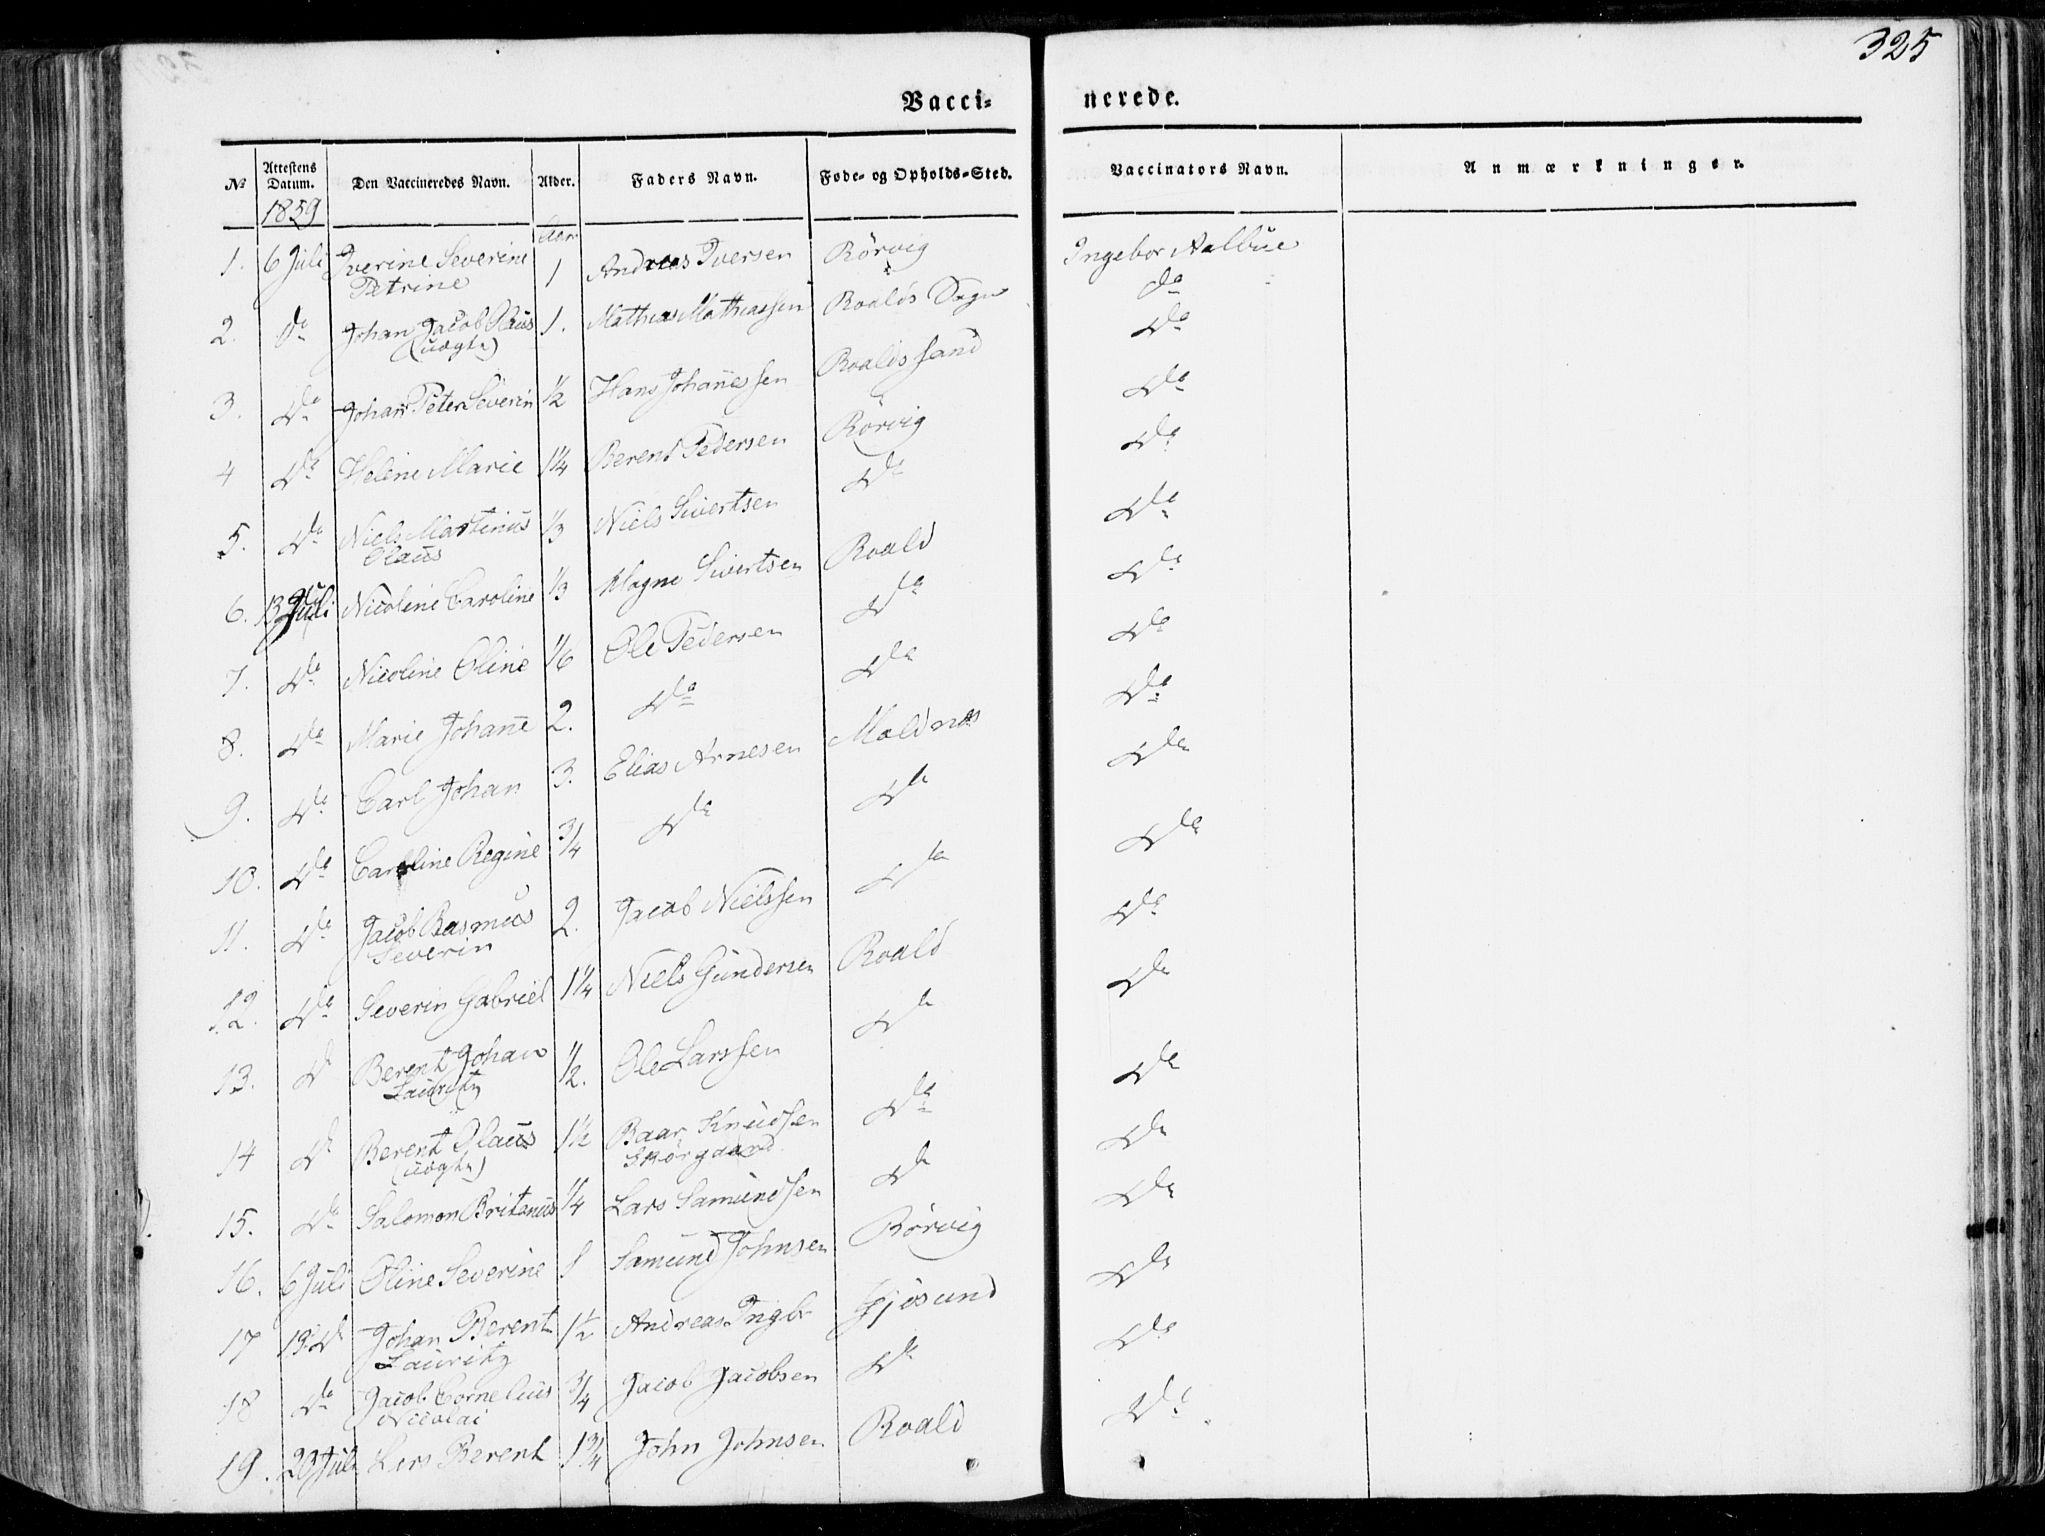 325
Vacci- nerede.
№ Attestens Datum. Den Vaccineredes Navn. Alder. Faders Navn. Føde- og Opholds-Sted. Vaccinators Navn. Anmærkninger.
1859 Aar
1. 6 Juli Iverine Severine 1 Andreas Iversen Rörvig Ingebor Aalbue
Petrine
2. Do Johan Jacob Olaus 1. Mathias Mathiassen Roalds Do
(uægte)
3. Do Johan Peter Severin 1/2 Hans Johanessen Roaldssand Do
4 Do Helene Marie 1 1/4 Berent Pedersen Rörvig Do
5. Do Niels Martinus 1/3 Niels Sivertsen Do Do
Olaus
6. 13 Juli Nicoline Caroline 1/3 Magne Sivertsen Roald Do
7. Do Nicoline Oline 1/6 Ole Pedersen Do Do
8. Do Marie Johane 2. Do Do Do
9. Do Carl Johan 3. Elias Arnesen Moldnæs Do
10. Do Caroline Regine 3/4 Do Do Do
11. Do Jacob Rasmus 2. Jacob Nielssen Do Do
Severin
12. Do Severin Gabriel 1 1/4 Niels Gundersen Roald Do
13. Do Berent Johan 1/2. Ole Larssen Do Do
Lauritz
14 Do Berent Olaus 1 1/2 Baar Knudsen Do Do
(uægte) Skorgaard
15. Do Salomon Britanus 1/4 Lars Samundsen Do Do
16. 6 Juli Oline Severine 1 Samund Johnsen Rörvig Do
17 19 Do Johan Berent 1 1/2 Andreas Ingbr Gjøsund Do
Lauritz
18 Do Jacob Cornelius 3/4 Jacob Jacobsen Do Do
Nicolai
19. 20 Juli Lars Berent 1 3/4 John Johnsen Roald Do